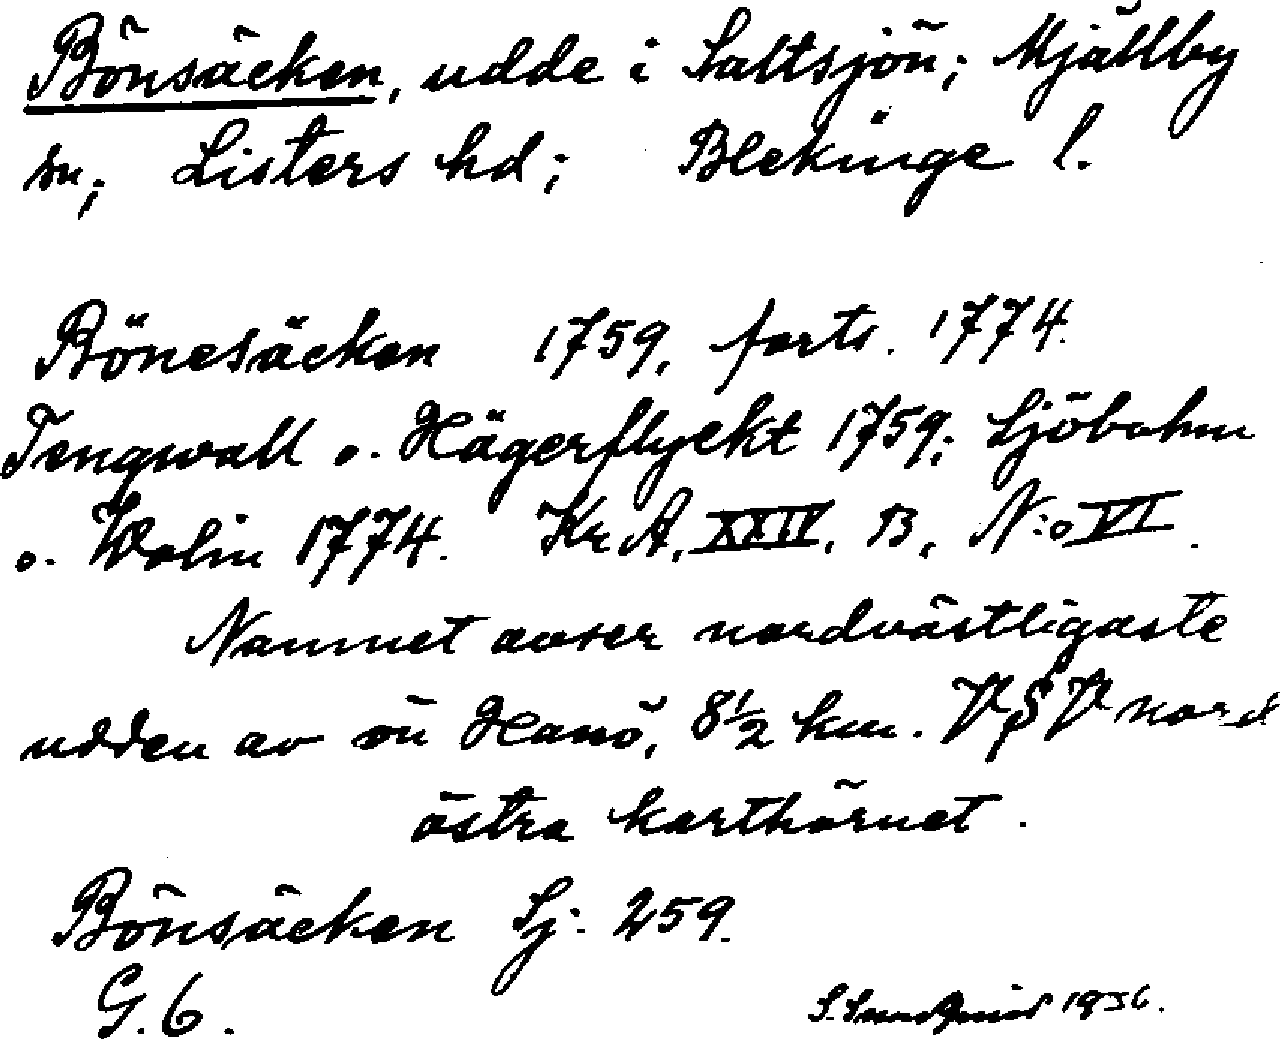 Bönsäcken, udde i Saltsjön; Mjällby
sn; Listers hd; Blekinge l.
Bönesäcken 1759, forts. 1774.
Tengwall o. Hägerflyckt 1759; Sjöbohm
o. Wolin 1774. Kr A, XXIV, B, N:o VI.
Namnet avser nordvästligaste
udden av ön Hanö, 8½ km. VSV nord
östra karthörnet.
Bönsäcken Sj: 259.
G. 6.